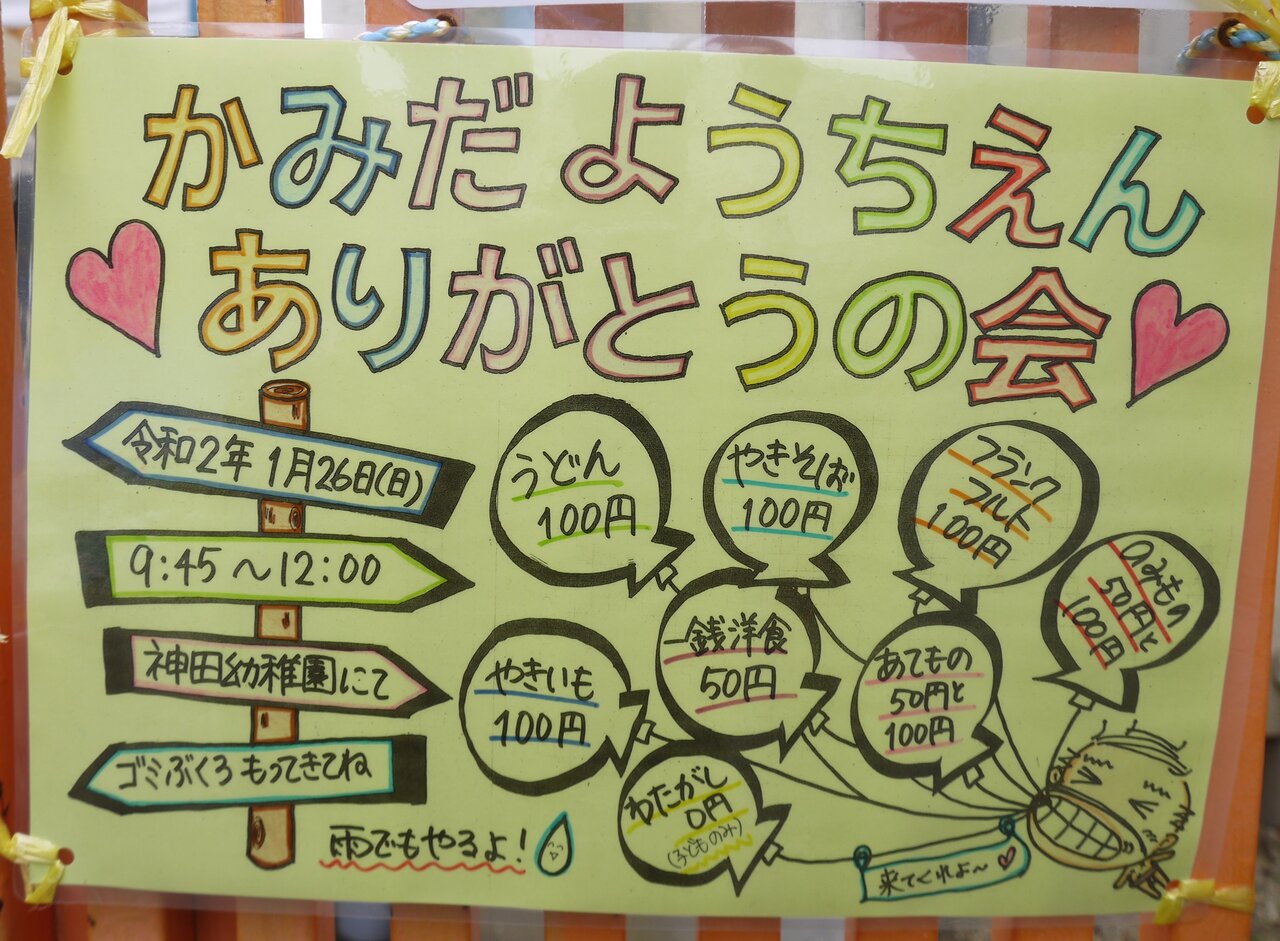 かみだようちえん
ありがとうの会
令和2年 1月26日(日)
9:45〜12:00
神田幼稚園にて
ゴミぶくろもってきてね
雨でもやるよ!
うどん
100円
やきそば
100円
フランク
フルト
100円
のみもの
50円と
100円
一銭洋食
50円
あてもの
50円と
100円
やきいも
100円
わたがし
0円
(子どものみ)
来てくれよ〜